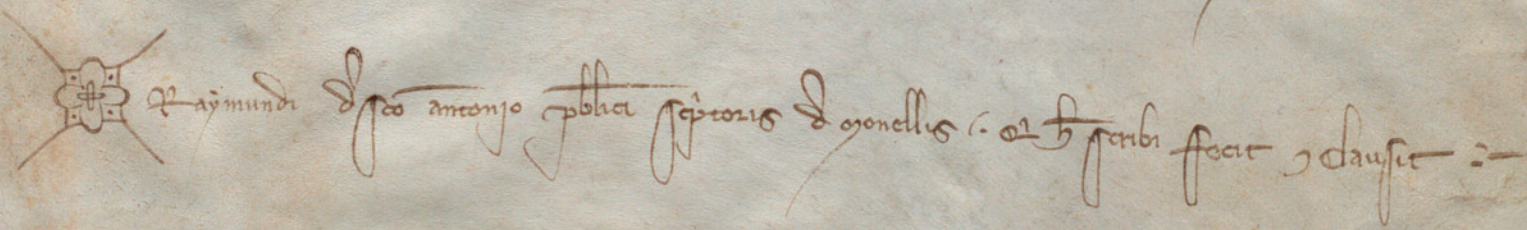 Raymundi d sco antonio pblici scptoris d Monellis . Qi h scribi fecit ⁊ clausit :-